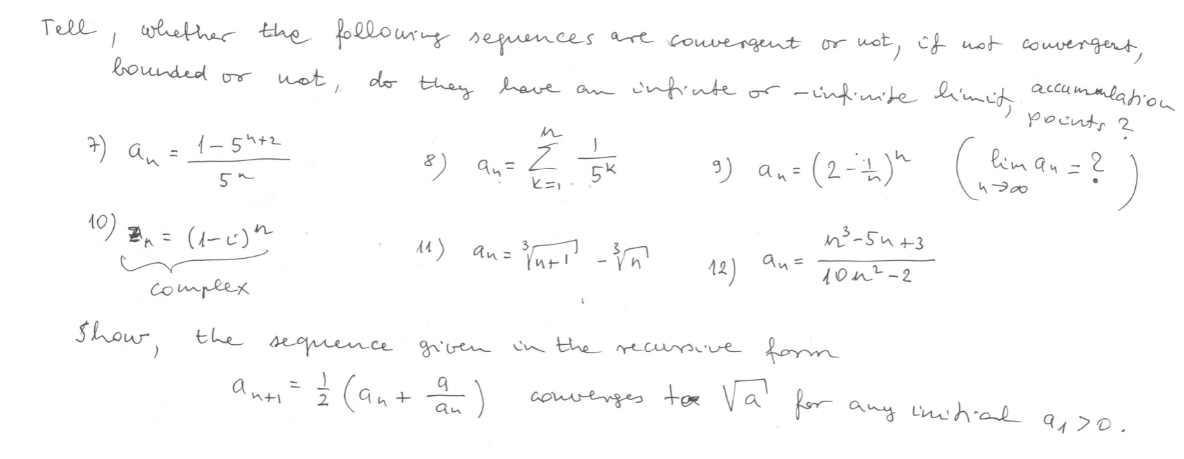 Tell, whether the following sequences are convergent or not, if not convergent,
bounded or not, do they have an infinite or -infinite limit, accummulation points?
7) a_n = (1-5^{n+2})/5^n 8) a_n = \sum_{k=1}^{n} 1/5^k 9) a_n = (2-1/n)^n ( lim_{n→∞} a_n = ? )
10) z_n = (1-i)^n 11) a_n = ∛(n+1) - ∛n 12) a_n = (n^3-5n+3)/(10n^2-2)
complex
Show, the sequence given in the recursive form
a_{n+1} = 1/2 (a_n + a/a_n) converges to √a for any initial a_1>0.